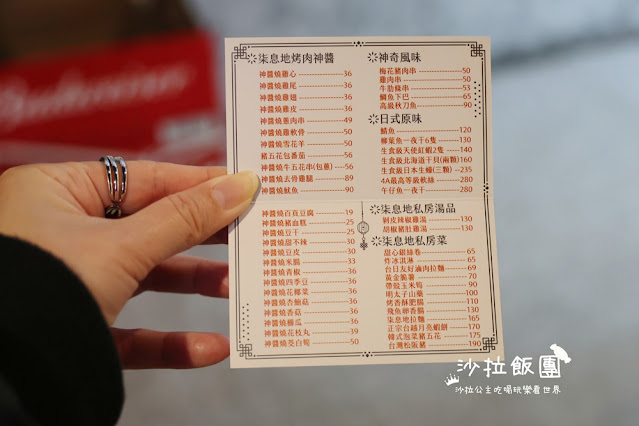 柒息地烤肉神醬
神醬燒雞心 36
神醬燒雞尾 36
神醬燒雞翅 36
神醬燒雞皮 36
神醬燒蔥肉串 49
神醬燒雞軟骨 50
神醬燒雪花羊 50
豬五花包番茄 56
神醬燒牛五花串(包蔥) 56
神醬燒去骨雞腿 89
神醬燒魷魚 90
神醬燒百頁豆腐 19
神醬燒豬血糕 25
神醬燒豆干 25
神醬燒甜不辣 30
神醬燒豆皮 30
神醬燒米腸 33
神醬燒青椒 36
神醬燒四季豆 36
神醬燒花椰菜 36
神醬燒杏鮑菇 36
神醬燒香菇 36
神醬燒櫛瓜 36
神醬燒花枝丸 39
神醬燒茭白筍 50
神奇風味
梅花豬肉串 50
雞肉串 50
牛肋條串 53
鯛魚下巴 65
高級秋刀魚 90
日式原味
鯖魚 120
柳葉魚一夜干6隻 130
生食級天使紅蝦2隻 140
生食級北海道干貝(兩顆) 160
生食級日本生蠔(三顆) 235
4A最高等級軟絲 280
午仔魚一夜干 280
柒息地私房湯品
剝皮辣椒雞湯 130
胡椒豬肚雞湯 130
柒息地私房菜
甜心銀絲卷 65
炸冰淇淋 65
台日友好滷肉拉麵 69
黃金脆薯 70
帶殼玉米筍 90
明太子山藥 100
烤香酥肥腸 110
飛魚卵香腸 130
柒息地拉麵 165
正宗台越月亮蝦餅 170
韓式泡菜豬五花 175
台灣松阪豬 190
沙拉飯團
沙拉公主吃喝玩樂看世界